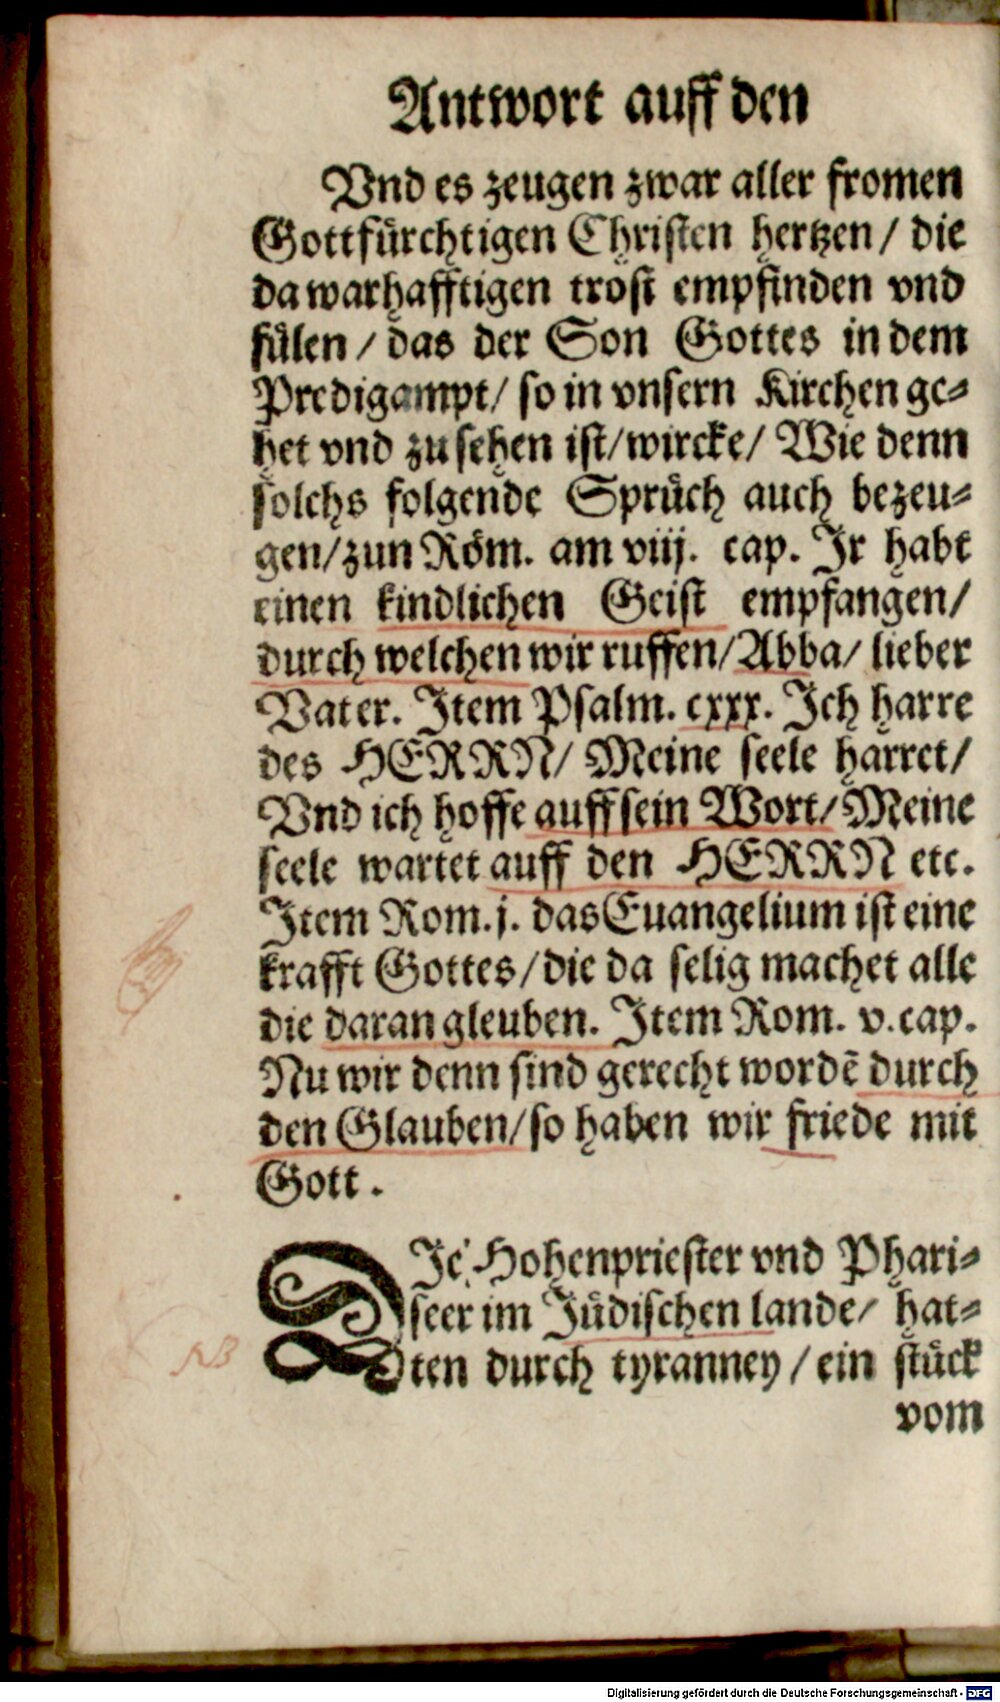 Antwort auff den
Vnd es zeugen zwar aller fromen
Gottfürchtigen Christen hertzen / die
da warhafftigen trost empfinden vnd
fülen / das der Son Gottes in dem
Predigampt / so in vnsern Kirchen ge⸗
het vnd zu sehen ist / wircke / Wie denn
solchs folgende Sprüch auch bezeu⸗
gen / zun Röm. am viij. cap. Ir habt
einen kindlichen Geist empfangen /
durch welchen wir ruffen / Abba / lieber
Vater. Item Psalm. cxxx. Ich harre
des HERRN / Meine seele harret /
Vnd ich hoffe auff sein Wort / Meine
seele wartet auff den HERRN etc.
Item Rom. j. das Euangelium ist eine
krafft Gottes / die da selig machet alle
die daran gleuben. Item Rom. v. cap.
Nu wir denn sind gerecht wordē durch
den Glauben / so haben wir friede mit
Gott.
DIe Hohenpriester vnd Phari⸗
seer im Jüdischen lande / hat⸗
NB
ten durch tyranney / ein stück
vom
Digitalisierung gefördert durch die Deutsche Forschungsgemeinschaft - DFG